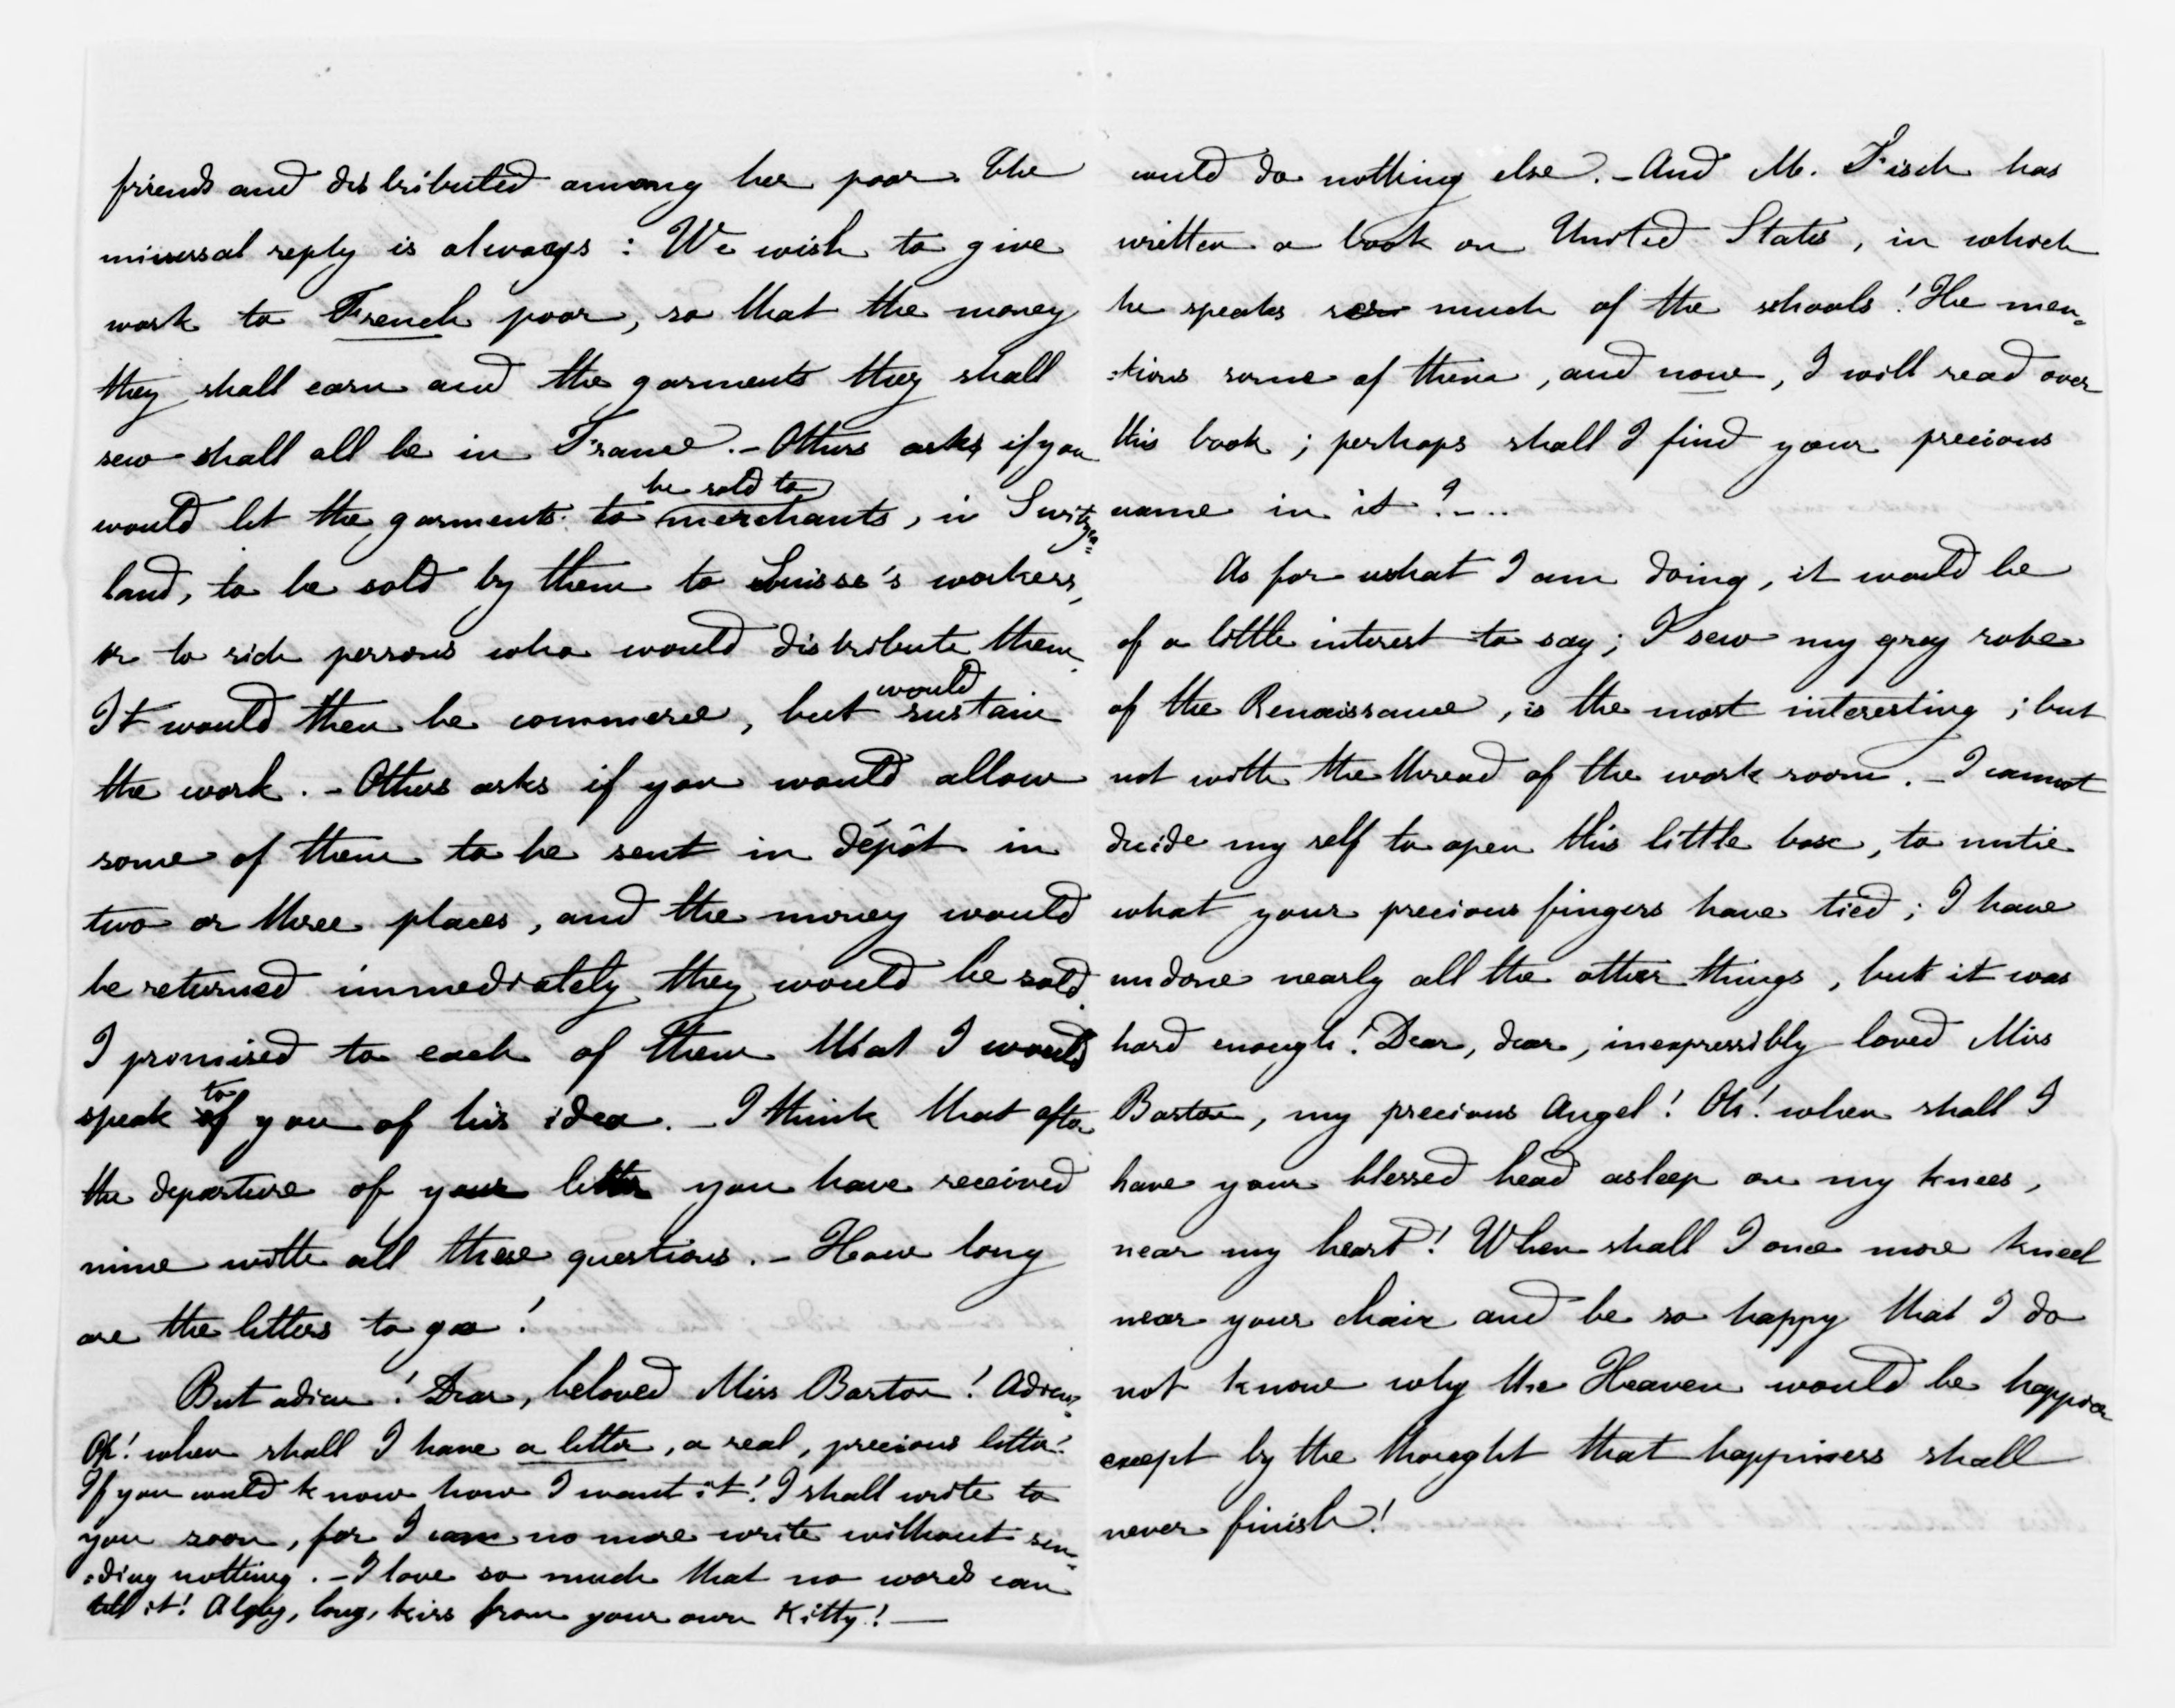 friends and distributed among her poor. The
universal reply is always : We wish to give
work to French poor, so that the money
they shall earn and the garments they shall
sew shall all be in France. - Others asks if you
would let the garments to be sold to merchants, in Switzer=
land, to be sold by them to Suisse's workers,
or to rich persons who would distribute them.
It would then be commerce, but would sustain
the work. - Others asks if you would allow
some of them to be sent in dépôt in
two or three places, and the money would
be returned immediately they would be sold.
I promised to each of them that I would
speak to you of his idea. - I think that after
the departure of your letter you have received
mine with all these questions. - How long
are the letters to go !
But adieu ! Dear, beloved Miss Barton ! Adieu!
Oh! when shall I have a letter, a real, precious letter!
If you could know how I want it! I shall write to
you soon, for I can no more write without sen=
=ding nothing. - I love so much that no words can
tell it! A long, long, kiss from your own Kitty! —
could do nothing else. - And M. Fisch has
written a book on United States, in which
he speaks so much of the schools! He men=
=tions some of them, and now, I will read over
this book ; perhaps shall I find your precious
name in it ? - ..
As for what I am doing, it would be
of a little interest to say; I sew my gray robe
of the Renaissance, is the most interesting ; but
not with the thread of the work room. - I cannot
decide my self to open this little box, to untie
what your precious fingers have tied ; I have
undone nearly all the other things, but it was
hard enough! Dear, dear, inexpressibly loved Miss
Barton, my precious Angel! Oh! when shall I
have your blessed head asleep on my knees,
near my heart! When shall I once more kneel
near your chair and be so happy that I do
not know why the Heaven would be happier
except by the thought that happiness shall
never finish!